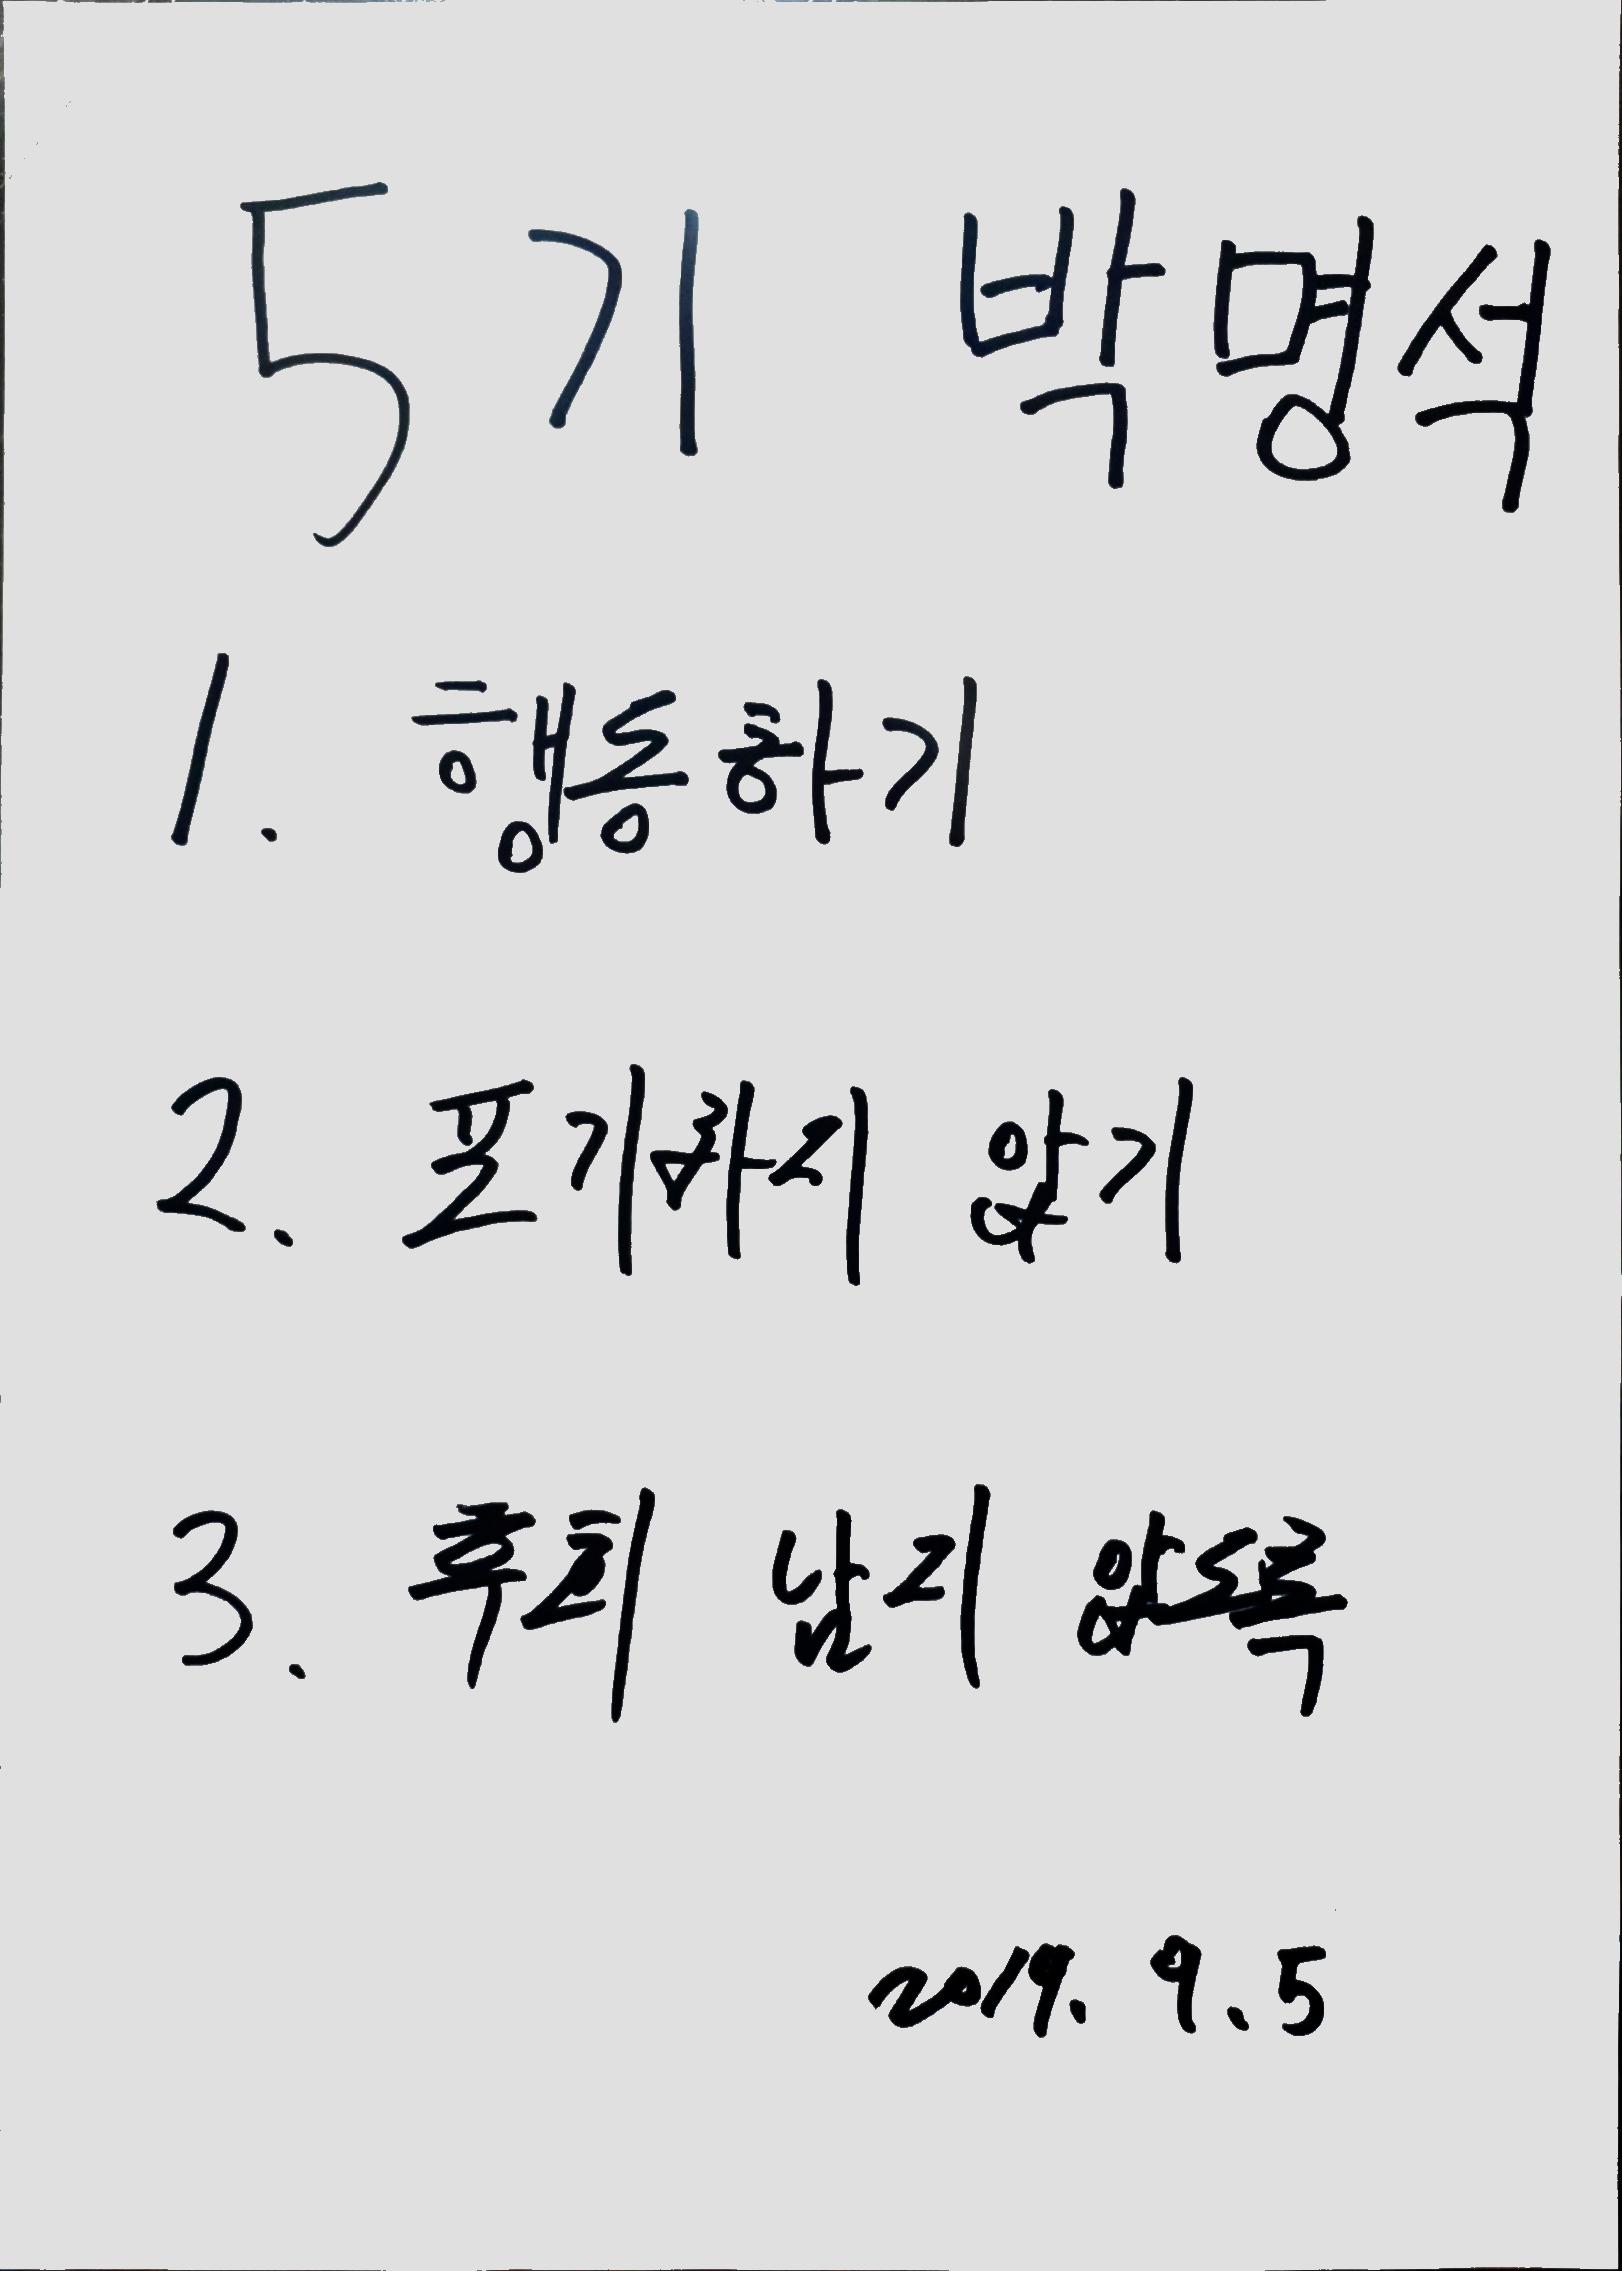 5기 박명석
1. 행동하기
2. 포기하지 않기
3. 후회 남지 않도록
2019. 9. 5